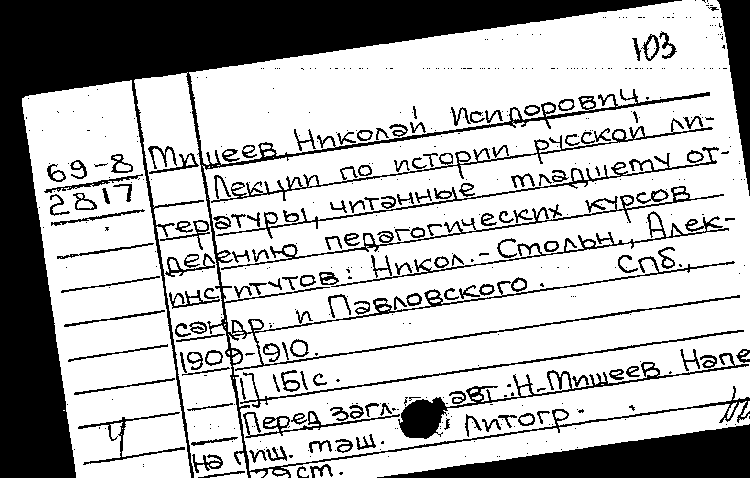 103
69-8
2817
Мишеев, Николай Исидорович.
Лекции по истории русской ли-
тературы, читанные младшему от-
делению педагогических курсов
институтов: Никол.-Смольн., Алек-
сандр. и Павловского. Спб.,
1909-1910.
[1], 151 с.
Перед загл. авт.: Н. Мишеев. Напе
на пиш. маш. Литогр.